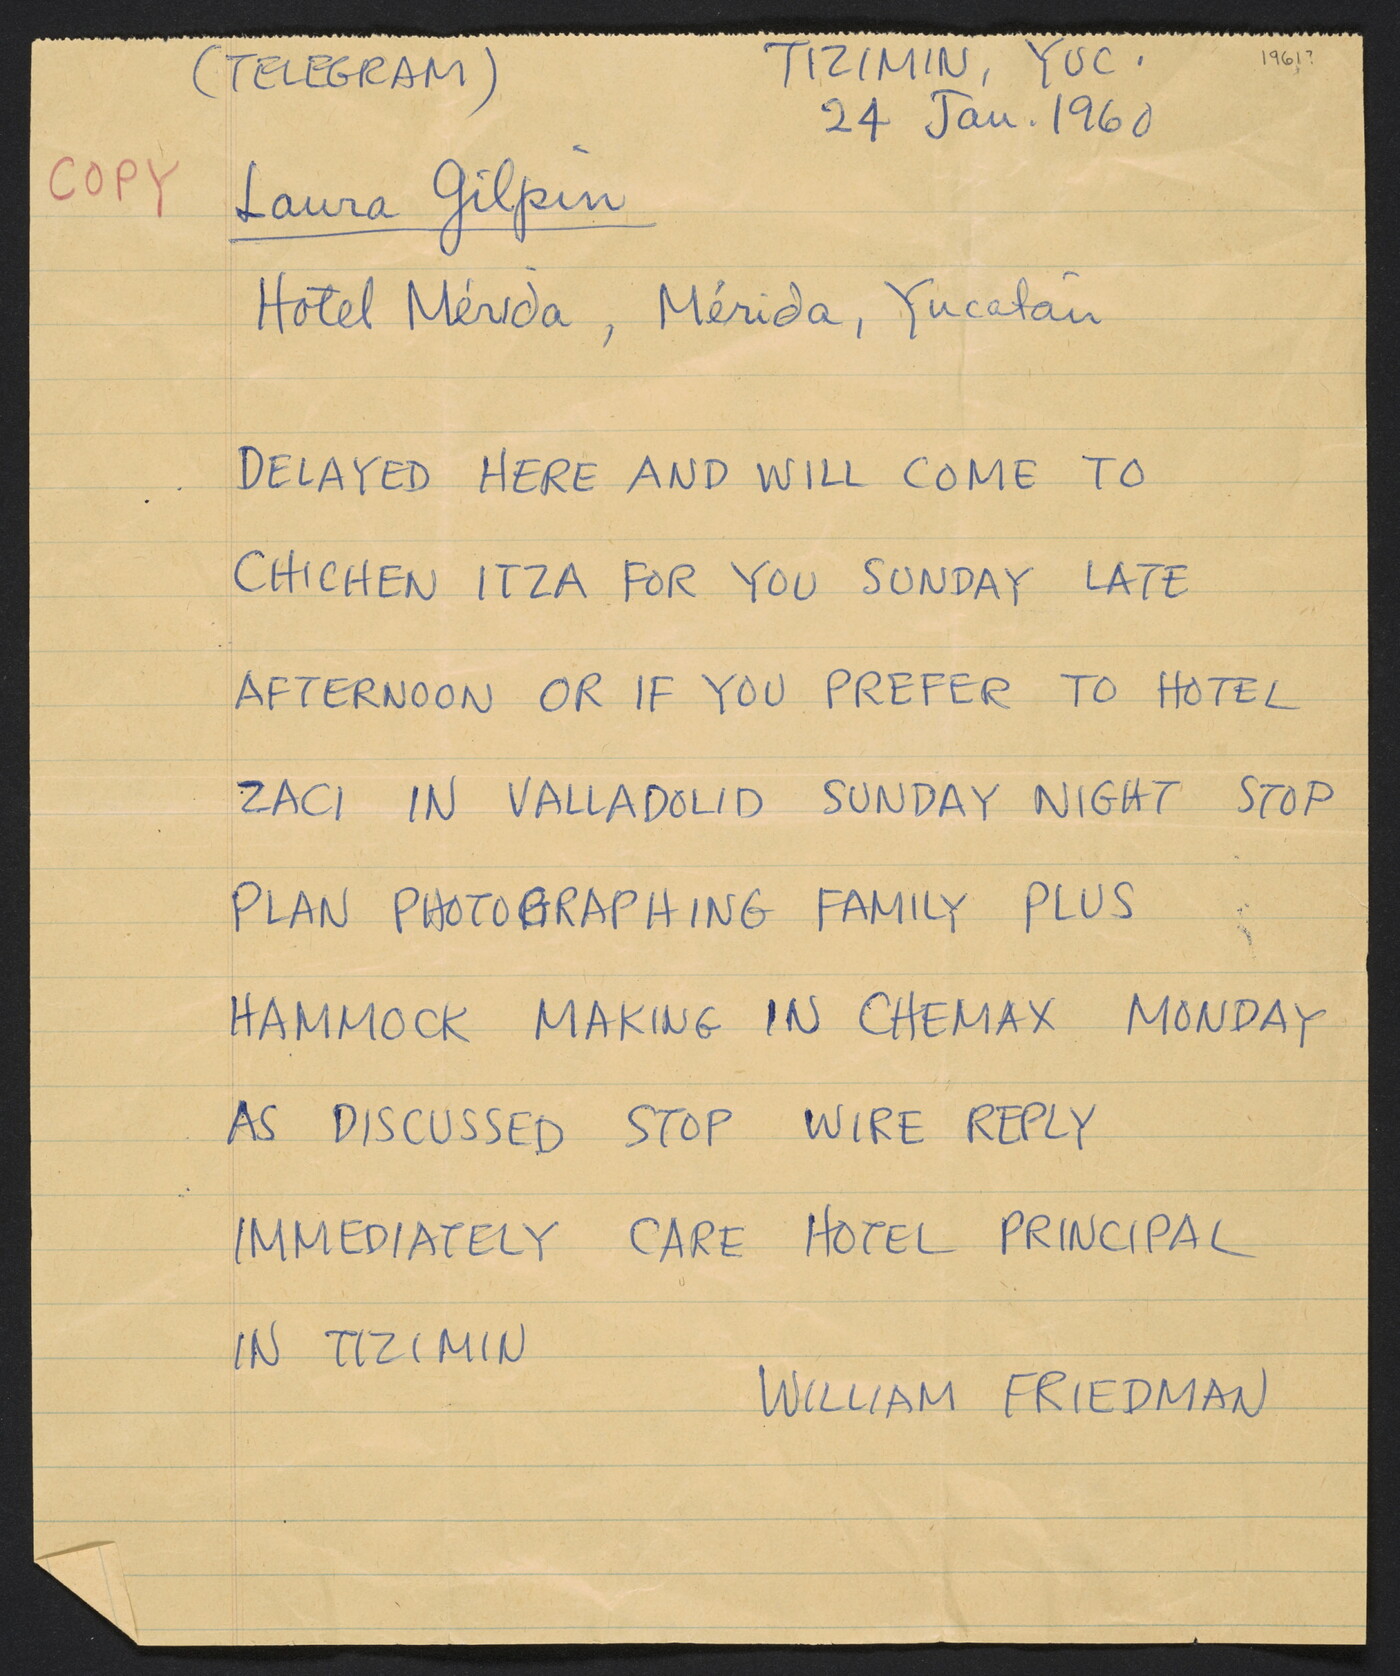 (TELEGRAM) TIZIMIN, YUC. 1961?
24 Jan. 1960
COPY Laura Gilpin
Hotel Mérida, Mérida, Yucatán
DELAYED HERE AND WILL COME TO
CHICHEN ITZA FOR YOU SUNDAY LATE
AFTERNOON OR IF YOU PREFER TO HOTEL
ZACI IN VALLADOLID SUNDAY NIGHT STOP
PLAN PHOTOGRAPHING FAMILY PLUS
HAMMOCK MAKING IN CHEMAX MONDAY
AS DISCUSSED STOP WIRE REPLY
IMMEDIATELY CARE HOTEL PRINCIPAL
IN TIZIMIN
WILLIAM FRIEDMAN